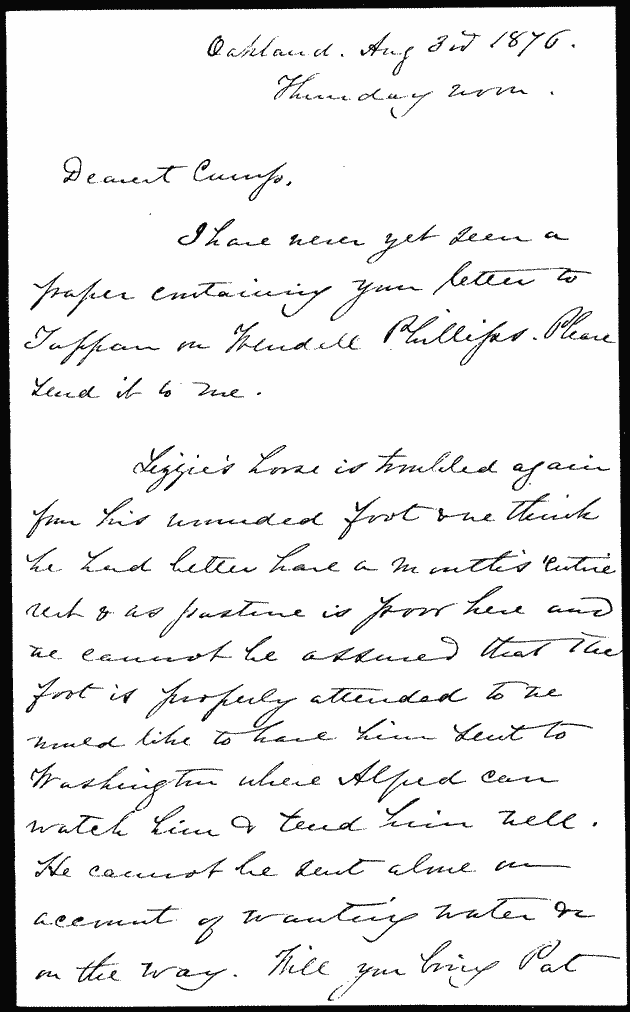 Oakland. Aug 3rd 1876.
Thursday noon.
Dearest Cump,
I have never yet seen a
paper containing your letter to
Tappan on Wendell Phillipss. Please
send it to me.
Lizzie's horse is troubled again
from his wounded foot & we think
he had better have a month's entire
rest & as pasture is poor here and
we cannot be assured that the
foot is properly attended to we
would like to have him sent to
Washington where Alfred can
watch him & tend him well.
He cannot be sent alone on
account of wanting water &c
on the way. Will you bring Pat